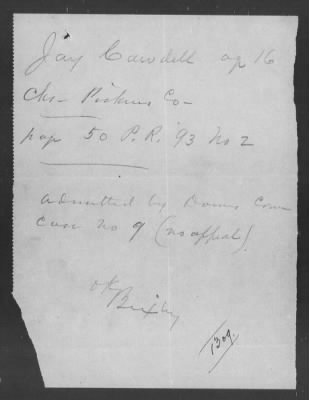 Jay Cawdell age 16
Chs - Pickens Co -
page 50 P.R. '93 No 2
admitted by Dawes Com
Case No 9 (no appeal).
OK
Bixby
1309.